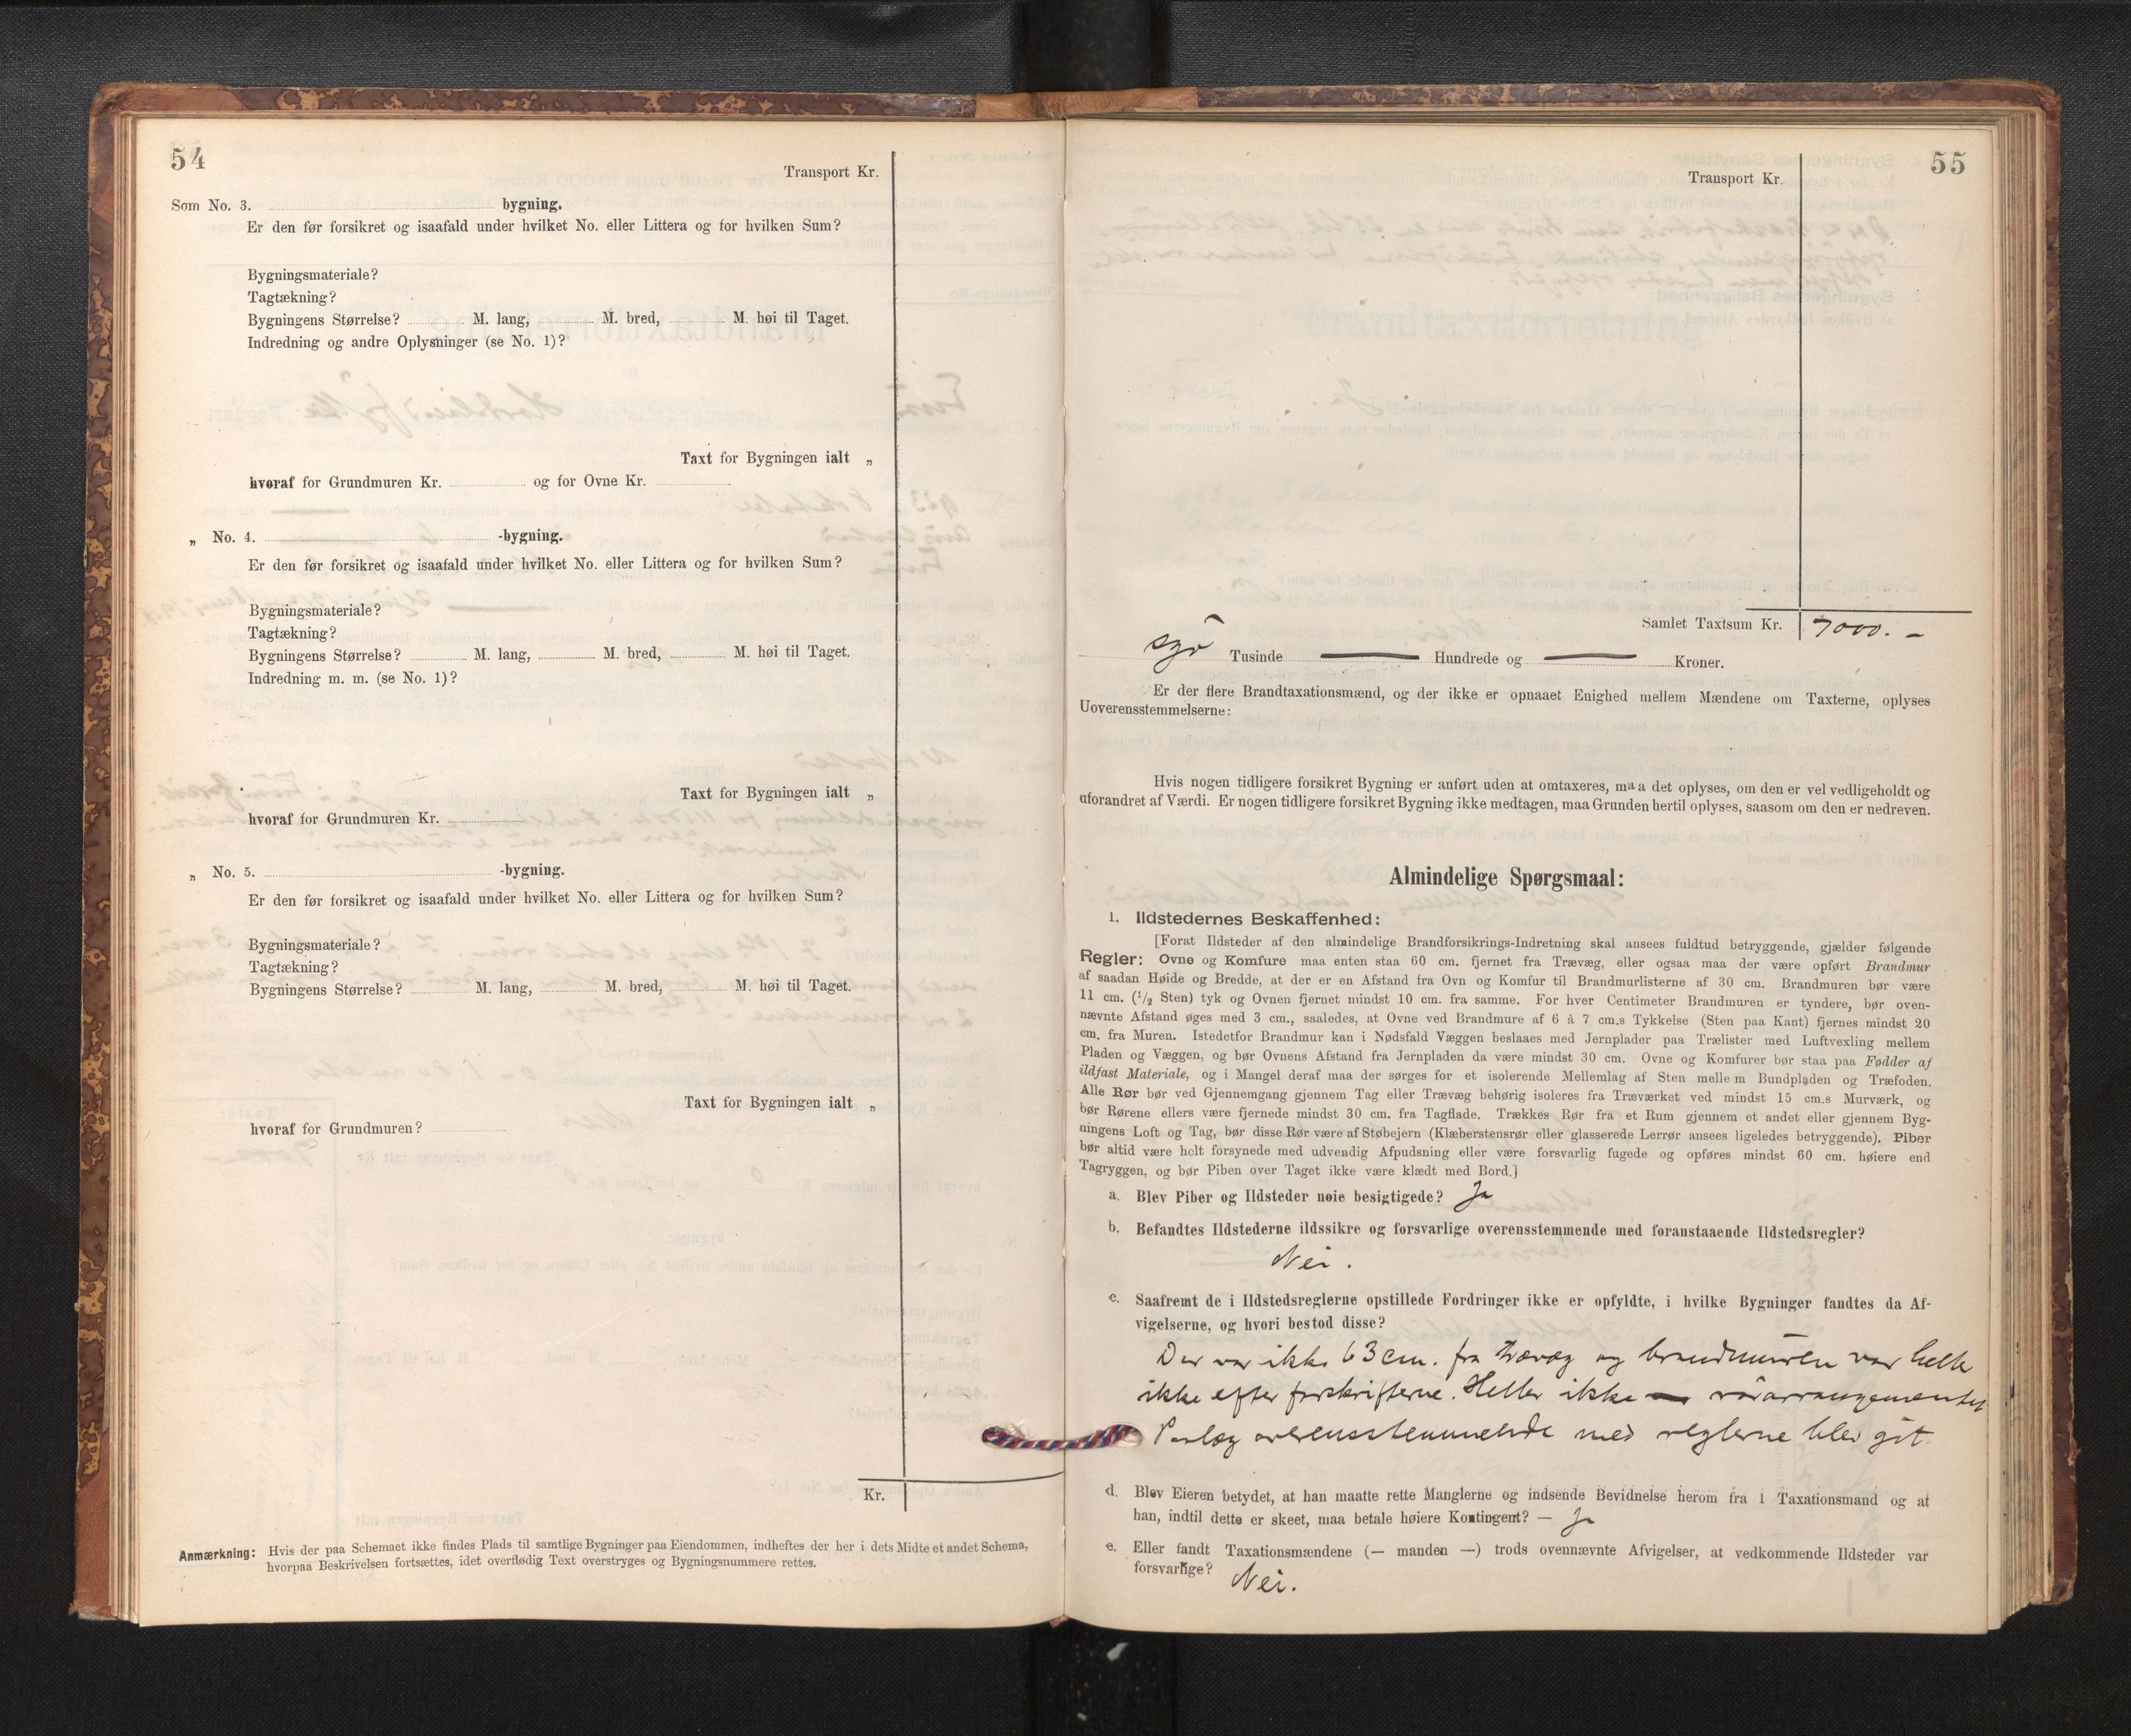 54
Transport Kr.
Som No. 3. bygning.
Er den før forsikret og isaafald under hvilket No. eller Littera og for hvilken Sum?
Bygningsmateriale?
Tagtækning?
Bygningens Størrelse? M. lang, M. bred, M. høi til Taget.
Indredning og andre Oplysninger (se No. 1)?
Taxt for Bygningen ialt „
hvoraf for Grundmuren Kr. og for Ovne Kr.
„ No. 4. -bygning.
Er den før forsikret og isaafald under hvilket No. eller Littera og for hvilken Sum?
Bygningsmateriale?
Tagtækning?
Bygningens Størrelse? M. lang, M. bred, M. høi til Taget.
Indredning m. m. (se No. 1)?
Taxt for Bygningen ialt „
hvoraf for Grundmuren Kr.
„ No. 5. -bygning.
Er den før forsikret og isaafald under hvilket No. eller Littera og for hvilken Sum?
Bygningsmateriale?
Tagtækning?
Bygningens Størrelse? M. lang, M. bred, M. høi til Taget.
Taxt for Bygningen ialt „
hvoraf for Grundmuren?
Kr.
Anmærkning: Hvis der paa Schemaet ikke findes Plads til samtlige Bygninger paa Eiendommen, indheftes der her i dets Midte et andet Schema,
hvorpaa Beskrivelsen fortsættes, idet overflødig Text overstryges og Bygningsnummere rettes.
55
Transport Kr.
Samlet Taxtsum Kr. 7000. –
syv Tusinde — Hundrede og — Kroner.
Er der flere Brandtaxationsmænd, og der ikke er opnaaet Enighed mellem Mændene om Taxterne, oplyses
Uoverensstemmelserne:
Hvis nogen tidligere forsikret Bygning er anført uden at omtaxeres, maa det oplyses, om den er vel vedligeholdt og
uforandret af Værdi. Er nogen tidligere forsikret Bygning ikke medtagen, maa Grunden hertil oplyses, saasom om den er nedreven.
Almindelige Spørgsmaal:
1. Ildstedernes Beskaffenhed:
[Forat Ildsteder af den almindelige Brandforsikrings-Indretning skal ansees fuldtud betryggende, gjælder følgende
Regler: Ovne og Komfure maa enten staa 60 cm. fjernet fra Trævæg, eller ogsaa maa der være opført Brandmur
af saadan Høide og Bredde, at der er en Afstand fra Ovn og Komfur til Brandmurlisterne af 30 cm. Brandmuren bør være
11 cm. (1/2 Sten) tyk og Ovnen fjernet mindst 10 cm. fra samme. For hver Centimeter Brandmuren er tyndere, bør oven-
nævnte Afstand øges med 3 cm., saaledes, at Ovne ved Brandmure af 6 à 7 cm.s Tykkelse (Sten paa Kant) fjernes mindst 20
cm. fra Muren. Istedetfor Brandmur kan i Nødsfald Væggen beslaaes med Jernplader paa Trælister med Luftvexling mellem
Pladen og Væggen, og bør Ovnens Afstand fra Jernpladen da være mindst 30 cm. Ovne og Komfurer bør staa paa Fødder af
ildfast Materiale, og i Mangel deraf maa der sørges for et isolerende Mellemlag af Sten mellem Bundpladen og Træfoden.
Alle Rør bør ved Gjennemgang gjennem Tag eller Trævæg behørig isoleres fra Træværket ved mindst 15 cm.s Murværk, og
bør Rørene ellers være fjernede mindst 30 cm. fra Tagflade. Trækkes Rør fra et Rum gjennem et andet eller gjennem Byg-
ningens Loft og Tag, bør disse Rør være af Støbejern (Klæberstensrør eller glasserede Lerrør ansees ligeledes betryggende). Piber
bør altid være helt forsynede med udvendig Afpudsning eller være forsvarlig fugede og opføres mindst 60 cm. høiere end
Tagryggen, og bør Piben over Taget ikke være klædt med Bord.]
a. Blev Piber og Ildsteder nøie besigtigede? Ja
b. Befandtes Ildstederne ildssikre og forsvarlige overensstemmende med foranstaaende Ildstedsregler?
Nei.
c. Saafremt de i Ildstedsreglerne opstillede Fordringer ikke er opfyldte, i hvilke Bygninger fandtes da Af-
vigelserne, og hvori bestod disse?
Der var ikke 63 cm. fra trævæg og brandmuren var heller
ikke efter forskrifterne. Heller ikke rørarrangementet
Paalæg overensstemmende med reglerne blev git
d. Blev Eieren betydet, at han maatte rette Manglerne og indsende Bevidnelse herom fra 1 Taxationsmand og at
han, indtil dette er skeet, maa betale høiere Kontingent? — Ja
e. Eller fandt Taxationsmændene (— manden —) trods ovennævnte Afvigelser, at vedkommende Ildsteder var
forsvarlige? Nei.